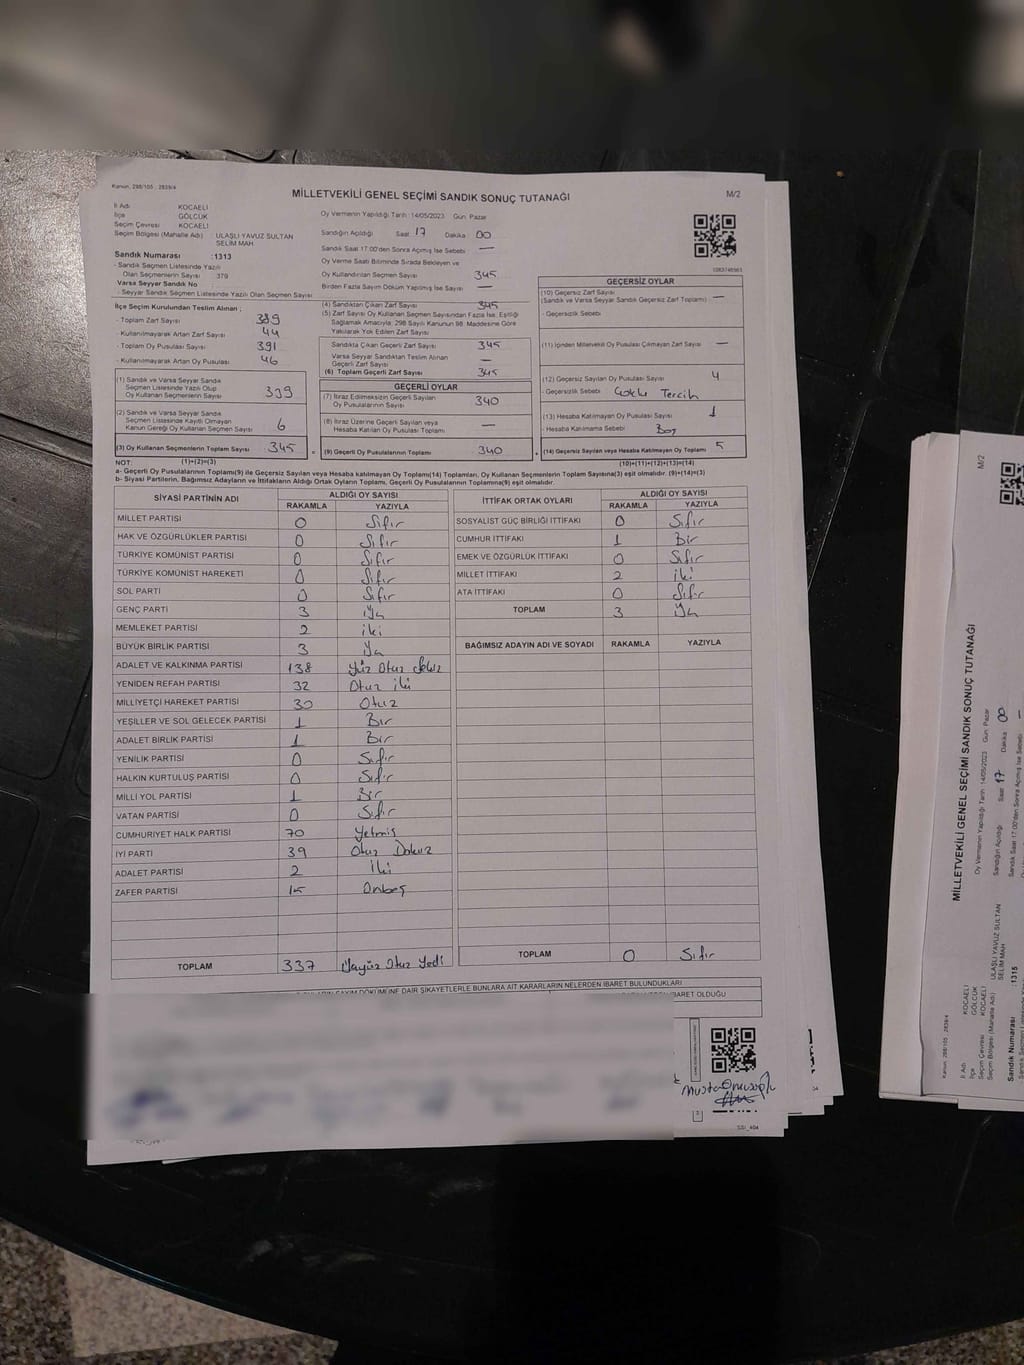 Kanun, 298/105 , 2839/4
MİLLETVEKİLİ GENEL SEÇİMİ SANDIK SONUÇ TUTANAĞI
M/2
İl Adı KOCAELİ
İlçe GÖLCÜK
Seçim Çevresi KOCAELİ
Seçim Bölgesi (Mahalle Adı) ULAŞLI YAVUZ SULTAN SELİM MAH
Sandık Numarası :1313
- Sandık Seçmen Listesinde Yazılı
Olan Seçmenlerin Sayısı 379
Varsa Seyyar Sandık No
- Seyyar Sandık Seçmen Listesinde Yazılı Olan Seçmen Sayısı
Oy Vermenin Yapıldığı Tarih :14/05/2023 Gün: Pazar
Sandığın Açıldığı Saat 17 Dakika 00
Sandık Saat 17.00'den Sonra Açılmış İse Sebebi —
Oy Verme Saati Bitiminde Sırada Bekleyen ve
Oy Kullandırılan Seçmen Sayısı 345
Birden Fazla Sayım Döküm Yapılmış İse Sayısı —
İlçe Seçim Kurulundan Teslim Alınan ;
- Toplam Zarf Sayısı 389
- Kullanılmayarak Artan Zarf Sayısı 44
- Toplam Oy Pusulası Sayısı 391
- Kullanılmayarak Artan Oy Pusulası 46
(1) Sandık ve Varsa Seyyar Sandık
Seçmen Listesinde Yazılı Olup
Oy Kullanan Seçmenlerin Sayısı 339
(2) Sandık ve Varsa Seyyar Sandık
Seçmen Listesinde Kayıtlı Olmayan
Kanun Gereği Oy Kullanan Seçmen Sayısı 6
(3) Oy Kullanan Seçmenlerin Toplam Sayısı 345
(4) Sandıktan Çıkan Zarf Sayısı 345
(5) Zarf Sayısı Oy Kullanan Seçmen Sayısından Fazla İse, Eşitliği
Sağlamak Amacıyla; 298 Sayılı Kanunun 98. Maddesine Göre
Yakılarak Yok Edilen Zarf Sayısı
Sandıkta Çıkan Geçerli Zarf Sayısı 345
Varsa Seyyar Sandıktan Teslim Alınan
Geçerli Zarf Sayısı —
(6) Toplam Geçerli Zarf Sayısı 345
GEÇERLİ OYLAR
(7) İtiraz Edilmeksizin Geçerli Sayılan
Oy Pusulalarının Sayısı 340
(8) İtiraz Üzerine Geçerli Sayılan veya
Hesaba Katılan Oy Pusulası Toplamı —
(9) Geçerli Oy Pusulalarının Toplamı 340
GEÇERSİZ OYLAR
(10) Geçersiz Zarf Sayısı
(Sandık ve Varsa Seyyar Sandık Geçersiz Zarf Toplamı) —
- Geçersizlik Sebebi
(11) İçinden Milletvekili Oy Pusulası Çıkmayan Zarf Sayısı —
(12) Geçersiz Sayılan Oy Pusulası Sayısı 4
- Geçersizlik Sebebi Çoklu Tercih
(13) Hesaba Katılmayan Oy Pusulası Sayısı 1
- Hesaba Katılmama Sebebi Boş
(14) Geçersiz Sayılan veya Hesaba Katılmayan Oy Toplamı 5
NOT: (1)+(2)=(3) (10)+(11)+(12)+(13)=(14)
a- Geçerli Oy Pusulalarının Toplamı(9) ile Geçersiz Sayılan veya Hesaba katılmayan Oy Toplamı(14) Toplamları, Oy Kullanan Seçmenlerin Toplam Sayısına(3) eşit olmalıdır. (9)+(14)=(3)
b- Siyasi Partilerin, Bağımsız Adayların ve İttifakların Aldığı Ortak Oyların Toplamı, Geçerli Oy Pusulalarının Toplamına(9) eşit olmalıdır.
SİYASİ PARTİNİN ADI ALDIĞI OY SAYISI
RAKAMLA YAZIYLA
MİLLET PARTİSİ 0 Sıfır
HAK VE ÖZGÜRLÜKLER PARTİSİ 0 Sıfır
TÜRKİYE KOMÜNİST PARTİSİ 0 Sıfır
TÜRKİYE KOMÜNİST HAREKETİ 0 Sıfır
SOL PARTİ 0 Sıfır
GENÇ PARTİ 3 Üç
MEMLEKET PARTİSİ 2 iki
BÜYÜK BİRLİK PARTİSİ 3 Üç
ADALET VE KALKINMA PARTİSİ 138 Yüz Otuz Sekiz
YENİDEN REFAH PARTİSİ 32 Otuz iki
MİLLİYETÇİ HAREKET PARTİSİ 30 Otuz
YEŞİLLER VE SOL GELECEK PARTİSİ 1 Bir
ADALET BİRLİK PARTİSİ 1 Bir
YENİLİK PARTİSİ 0 Sıfır
HALKIN KURTULUŞ PARTİSİ 0 Sıfır
MİLLİ YOL PARTİSİ 1 Bir
VATAN PARTİSİ 0 Sıfır
CUMHURİYET HALK PARTİSİ 70 Yetmiş
İYİ PARTİ 39 Otuz Dokuz
ADALET PARTİSİ 2 İki
ZAFER PARTİSİ 15 Onbeş
TOPLAM 337 Üçyüz Otuz Yedi
İTTİFAK ORTAK OYLARI ALDIĞI OY SAYISI
RAKAMLA YAZIYLA
SOSYALİST GÜÇ BİRLİĞİ İTTİFAKI 0 Sıfır
CUMHUR İTTİFAKI 1 Bir
EMEK VE ÖZGÜRLÜK İTTİFAKI 0 Sıfır
MİLLET İTTİFAKI 2 iki
ATA İTTİFAKI 0 Sıfır
TOPLAM 3 Üç
BAĞIMSIZ ADAYIN ADI VE SOYADI RAKAMLA YAZIYLA
TOPLAM 0 Sıfır
SAYIM DÖKÜMÜNE DAİR ŞİKAYETLERLE BUNLARA AİT KARARLARIN NELERDEN İBARET BULUNDUKLARI
İBARET OLDUĞU
M/2
MİLLETVEKİLİ GENEL SEÇİMİ SANDIK SONUÇ TUTANAĞI
Kanun, 298/105 , 2839/4
İl Adı KOCAELİ
İlçe GÖLCÜK
Seçim Çevresi KOCAELİ
Seçim Bölgesi (Mahalle Adı) ULAŞLI YAVUZ SULTAN SELİM MAH
Sandık Numarası :1315
Oy Vermenin Yapıldığı Tarih :14/05/2023 Gün: Pazar
Sandığın Açıldığı Saat 17 Dakika 00
Sandık Saat 17.00'den Sonra Açılmış İse Sebebi —